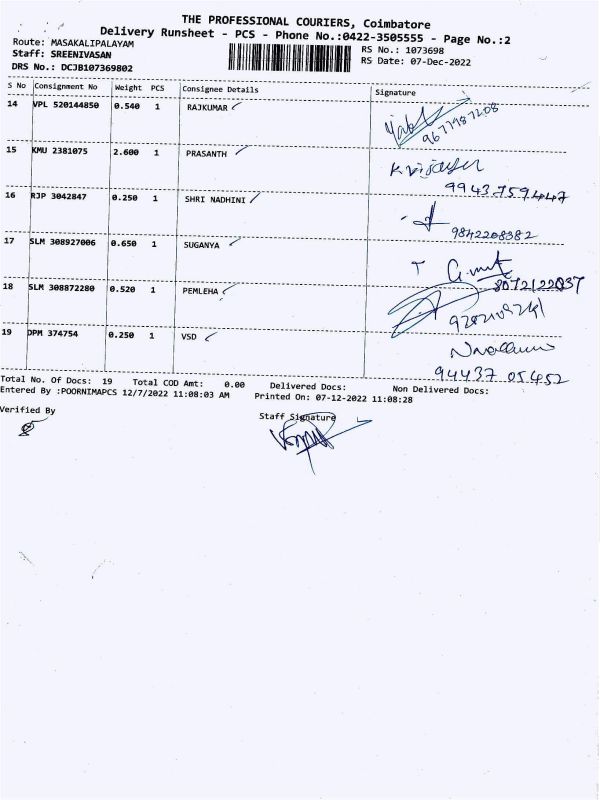 THE PROFESSIONAL COURIERS, Coimbatore
Delivery Runsheet - PCS - Phone No.:0422-3505555 - Page No.:2
Route: MASAKALIPALAYAM
RS No.: 1073698
Staff: SREENIVASAN
RS Date: 07-Dec-2022
DRS No.: DCJB107369802
S No Consignment No Weight PCS Consignee Details Signature
14 VPL 520144850 0.540 1 RAJKUMAR
9677987208
15 KMU 2381075 2.600 1 PRASANTH K. Vijayen
9943759447
16 RJP 3042847 0.250 1 SHRI NADHINI
9842208382
17 SLM 308927006 0.650 1 SUGANYA
8072122037
18 SLM 308872280 0.520 1 PEMLEHA
19 DPM 374754 0.250 1 VSD
94437 05452
Total No. Of Docs: 19 Total COD Amt: 0.00 Delivered Docs: Non Delivered Docs:
Entered By :POORNIMAPCS 12/7/2022 11:08:03 AM Printed On: 07-12-2022 11:08:28
Verified By
Staff Signature